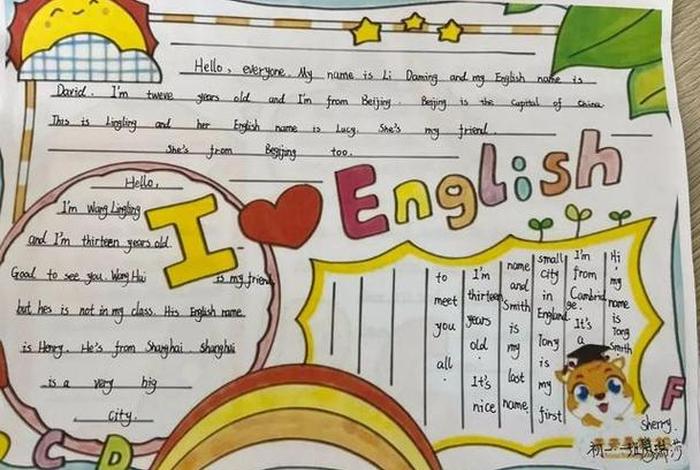 Hello, everyone. My name is Li Daming and my English name is
David. I'm tweve years old and I'm from Beijing. Beijing is the capital of China.
This is Lingling and her English name is Lucy. She's my friend.
She's from Begijing too.
I ❤ English
Hello,
I'm Wang Lingling
and I'm thirteen years old.
Good to see you. Wang Hui is my friend
but hes is not in my class. His English name
is Henry. He's from Shanghai. Shanghai
is a very big
city.
Hi, my name is Tong Smith
I'm from Cambridge. It's a
small city in England. Tony is my first
name and Smith is my last name.
I'm thirteen years old. It's nice
to meet you all.
C D
F
Sherry.